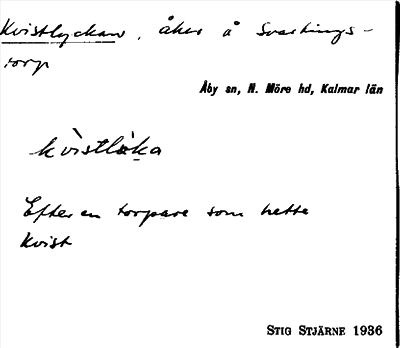 Kvistlyckan, åker å Svartings-
torp
Åby sn, N. Möre hd, Kalmar län
kvistlɑka
Efter en torpare som hette
Kvist
STIG STJÄRNE 1936